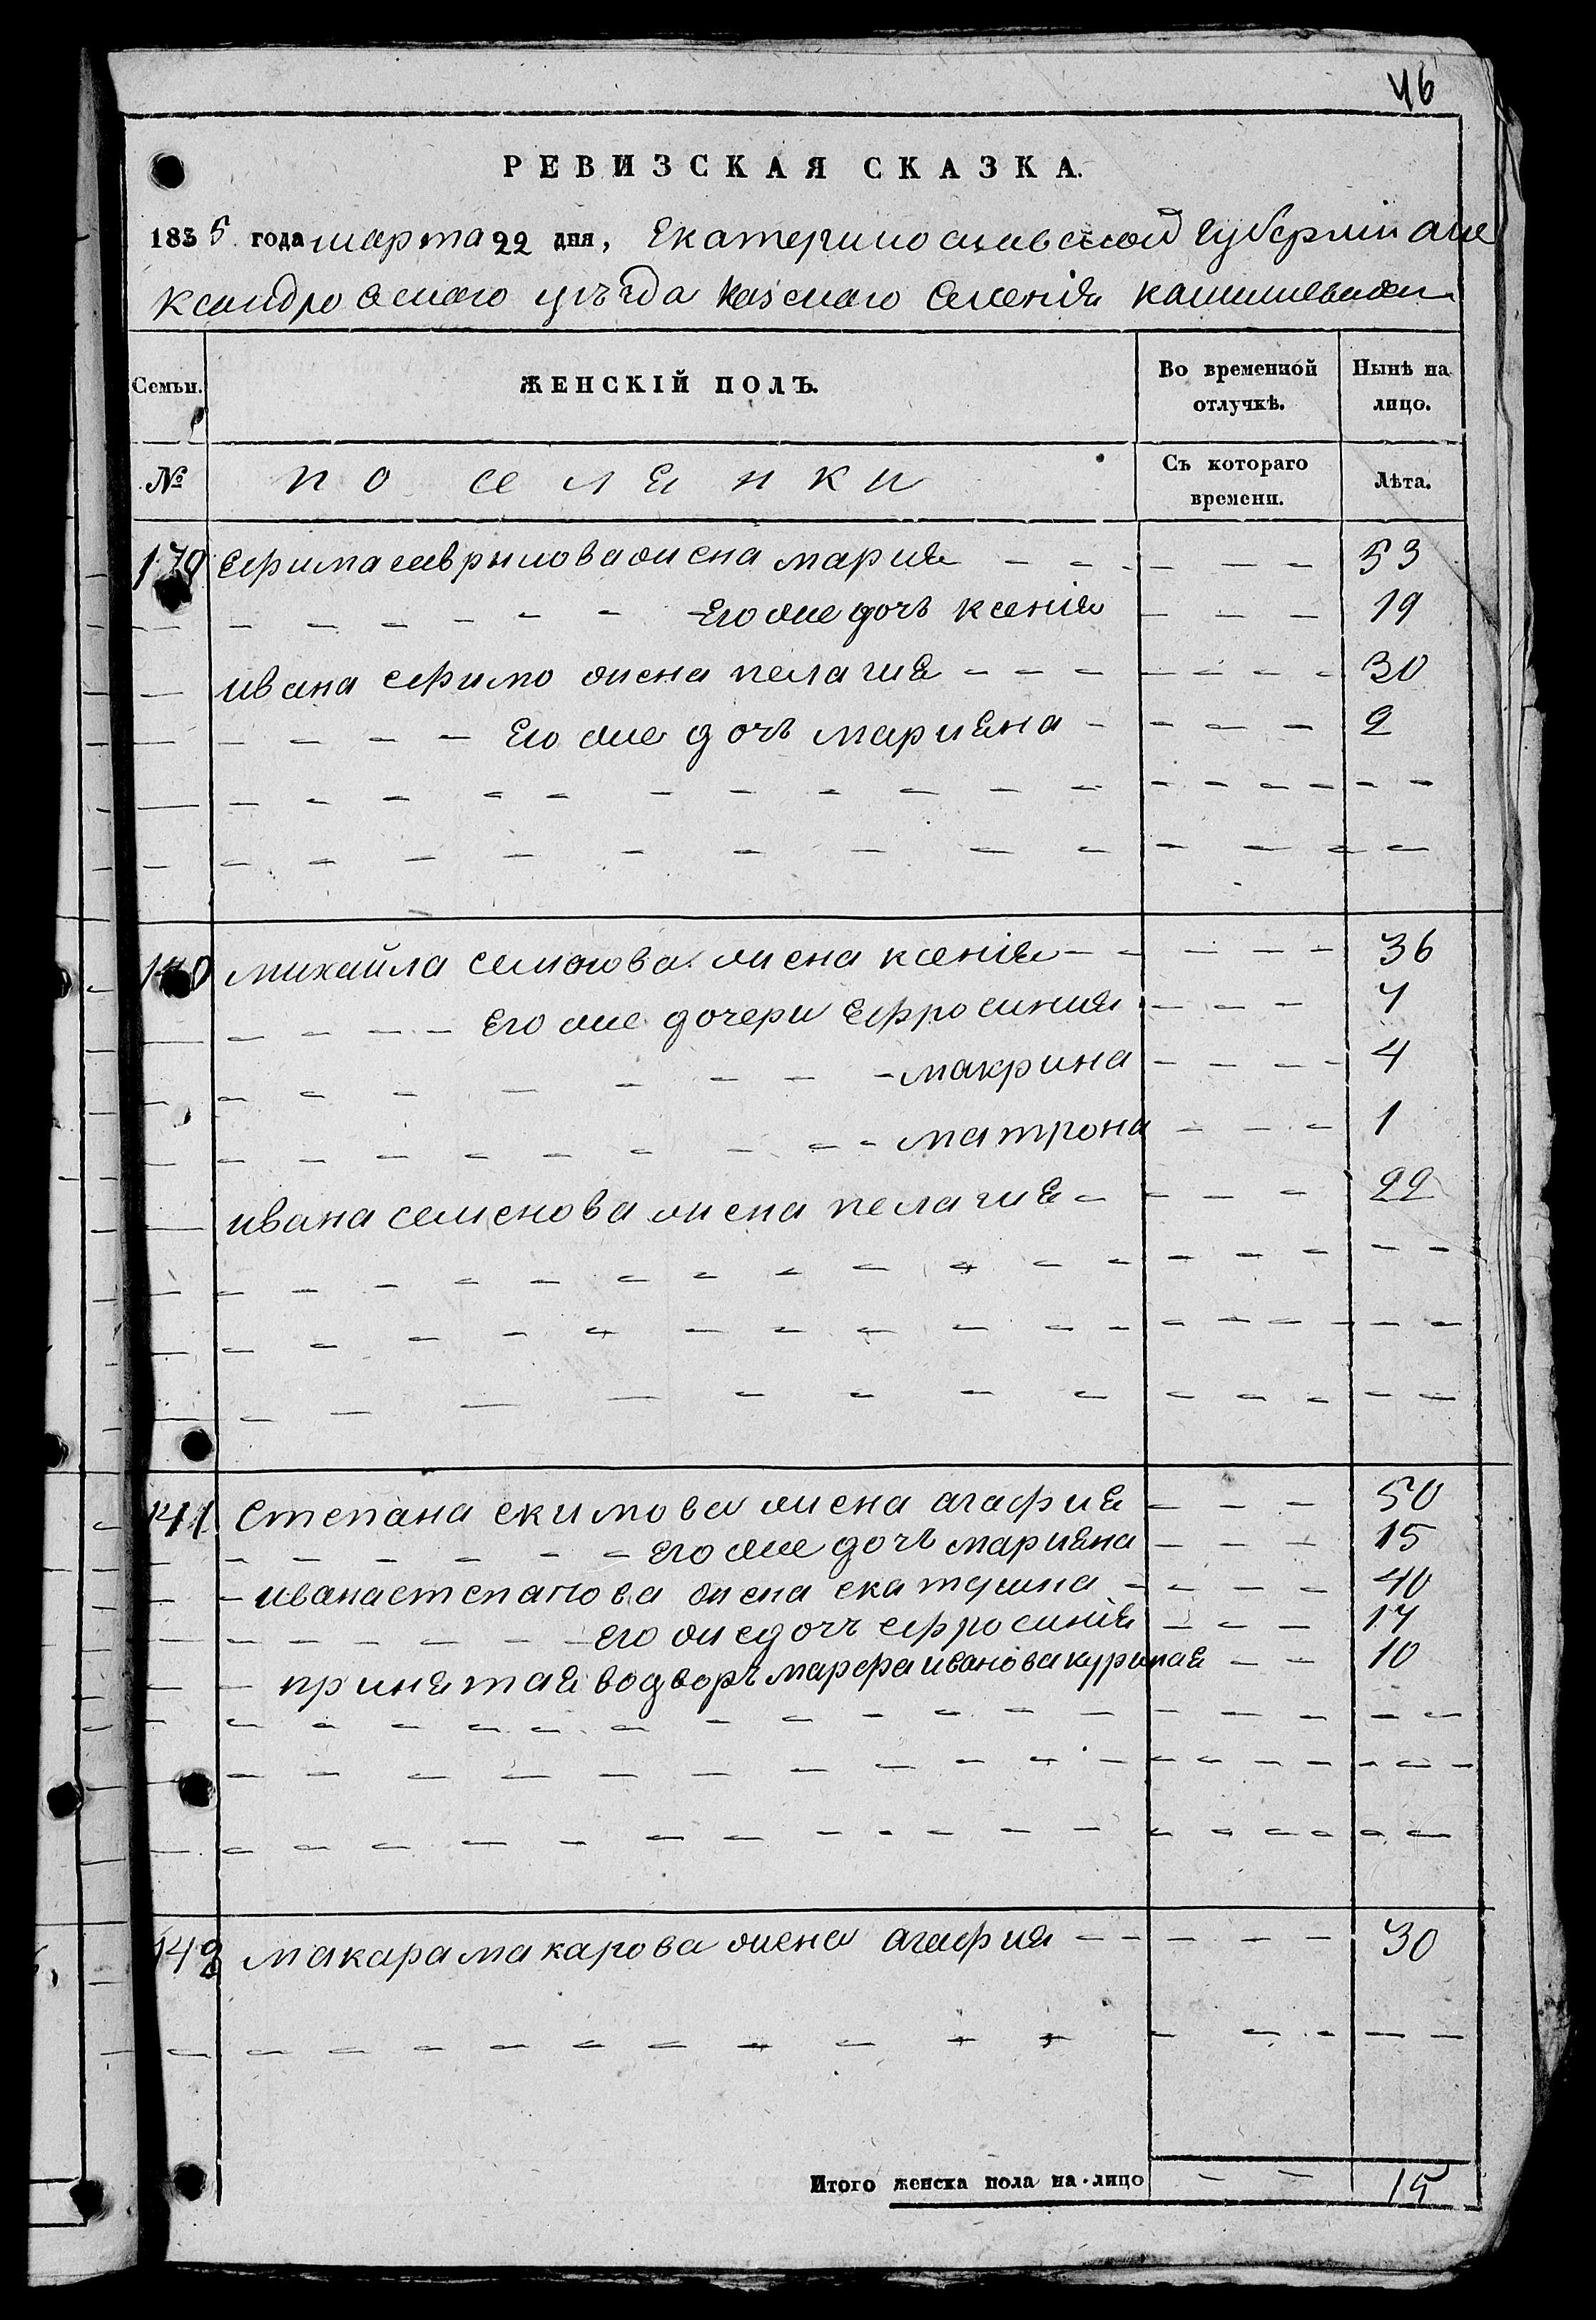 46
РЕВИЗСКАЯ СКАЗКА.
1835 года марта 22 дня, Екатериnославской губернии але
ксандровскаго уъзда казенаго селенія камишевахи
Семьи. ЖЕНСКІЙ ПОЛЪ. Во временной отлучкѣ. Нынѣ на лицо.
№ поселянки Съ котораго времени. Лѣта.
139 ефима гаврилова жена мария 53
его же дочъ ксенія 19
ивана ефимо жена пелагия 30
его же дочъ марияна 2
140 михайла семенова жена ксенія 36
его же дочери ефросиния 7
макрина 4
матрона 1
ивана семенова жена пелагия 22
141 степана екимова жена агафия 50
его же дочъ марияна 15
ивана степанова жена екатерина 40
его же дочъ ефросинія 17
принятая водворъ марфа иванова 10
142 макара макарова жена агафия 30
Итого женска пола на-лицо 15